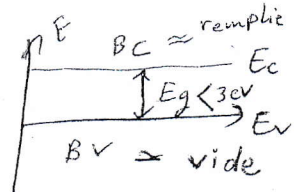 E
BC ≃ remplie
Ec
Eg < 3eV
Ev
BV ≃ vide